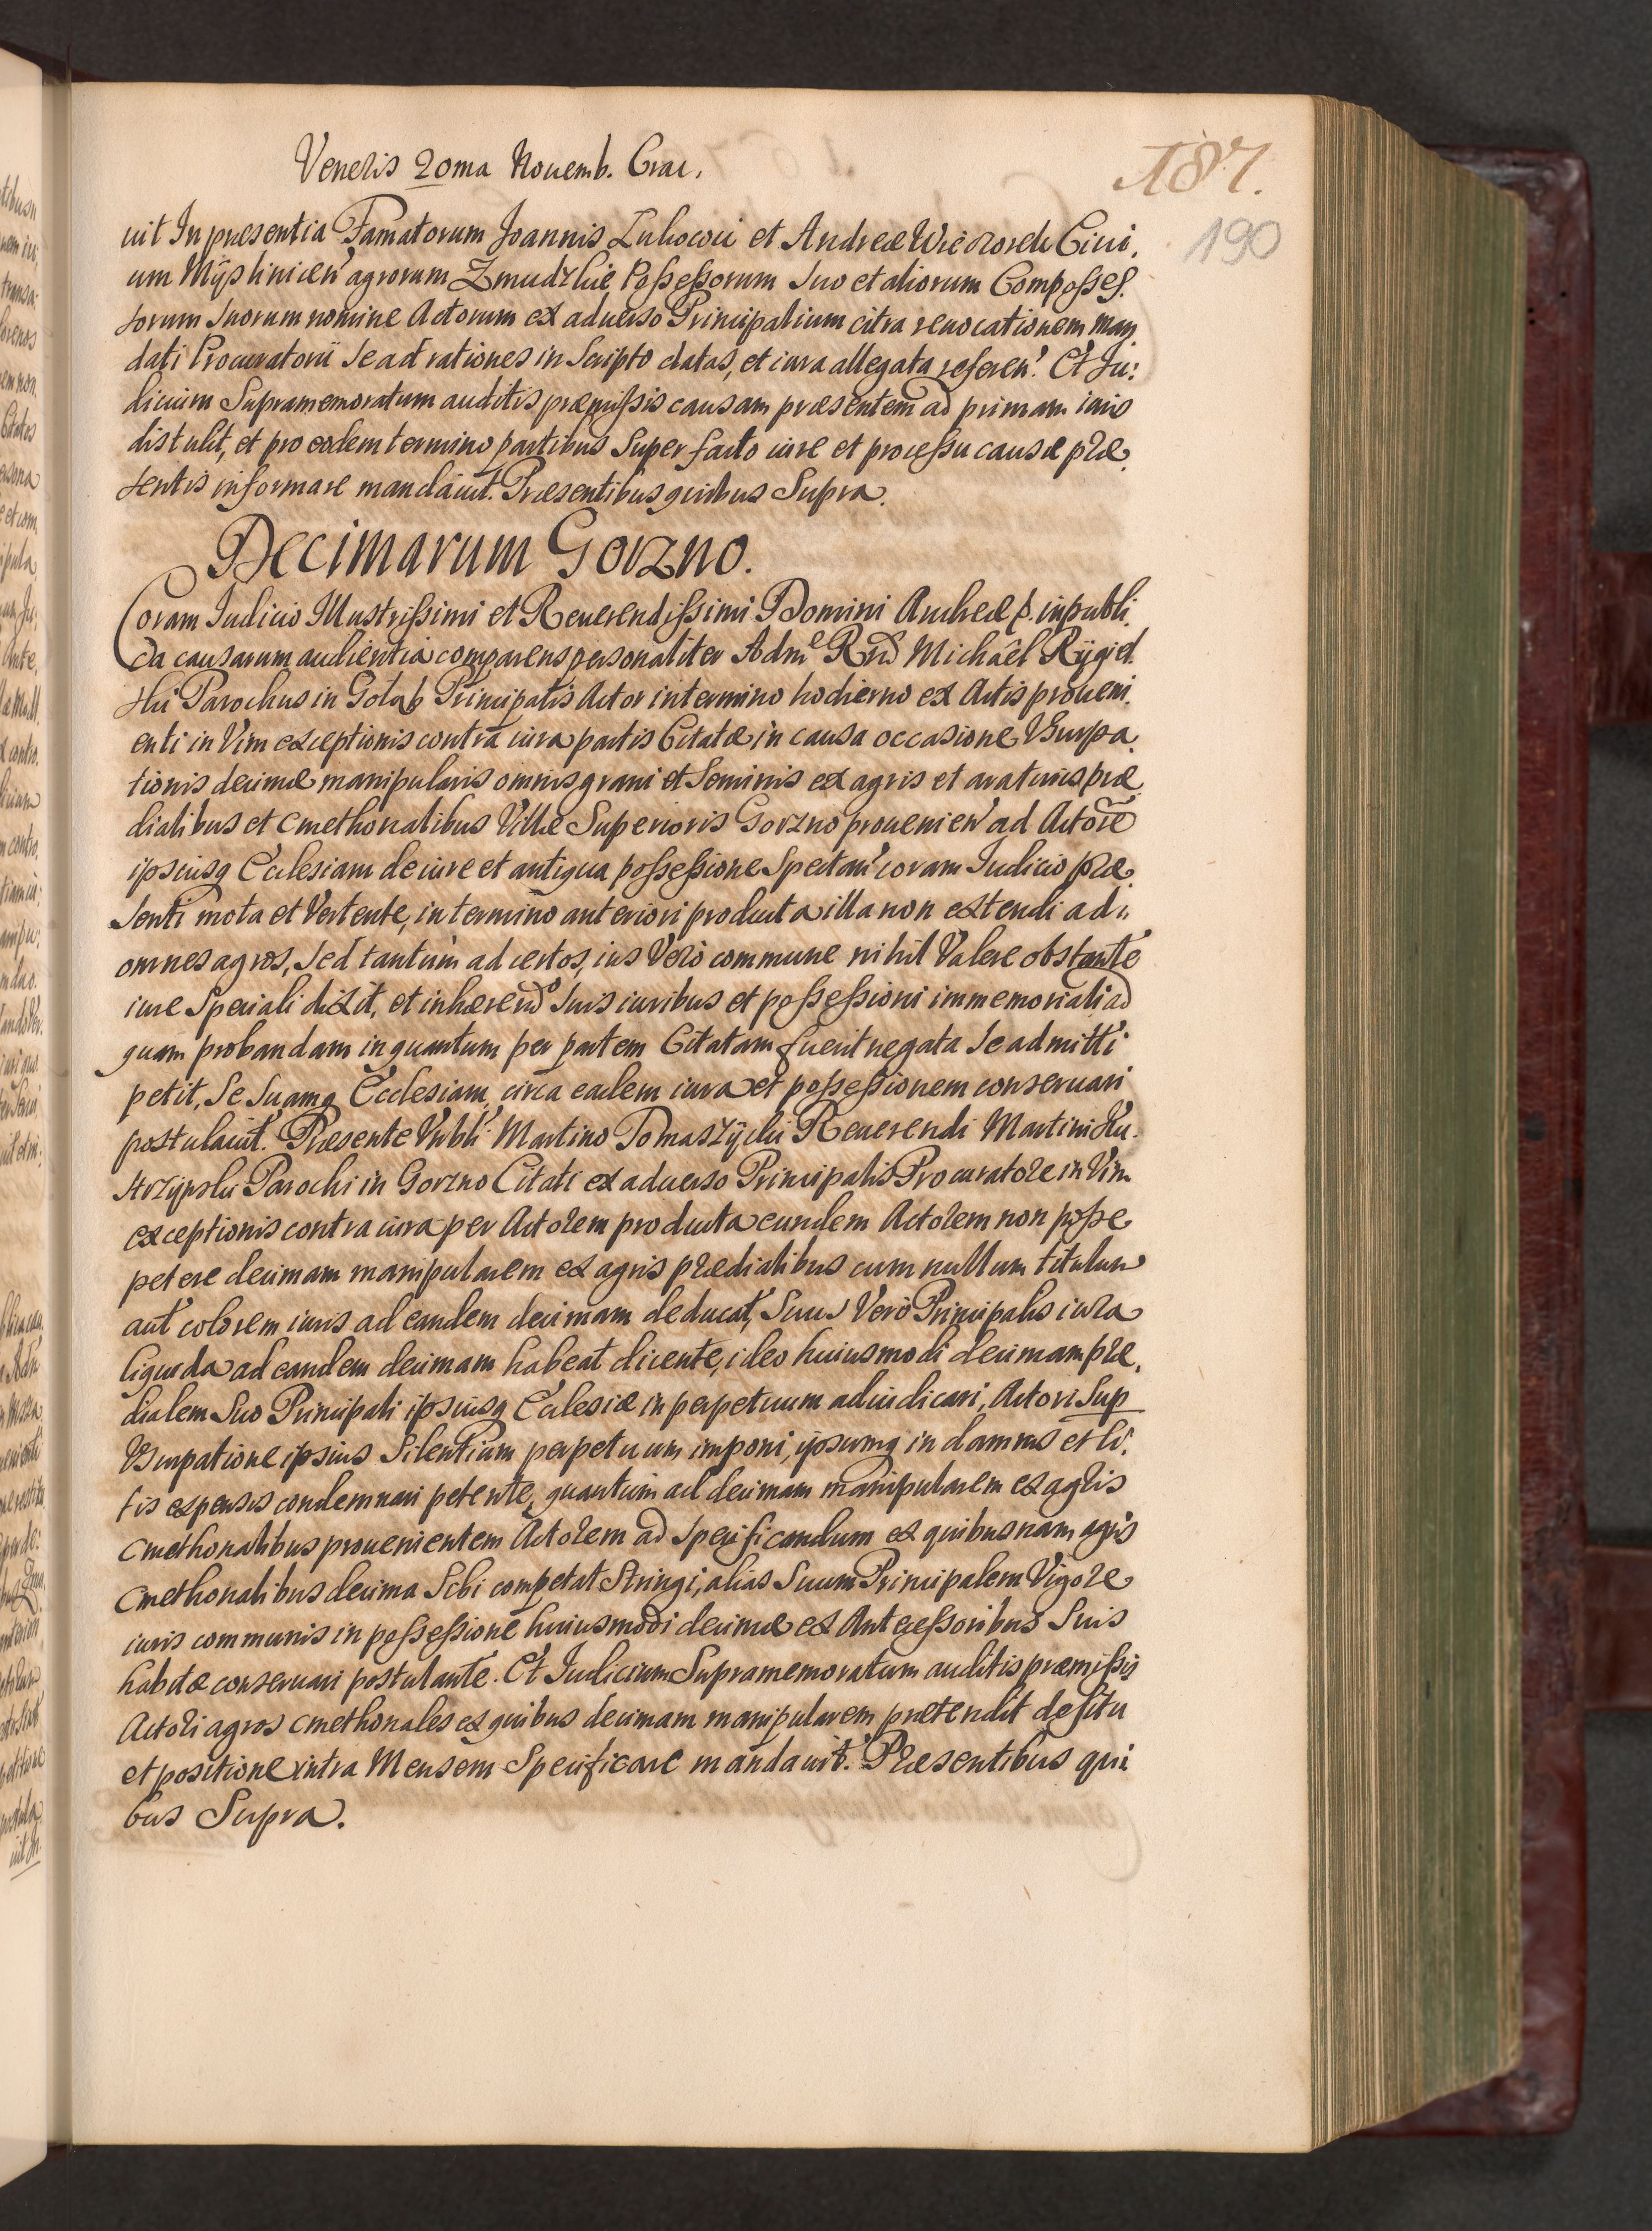 Veneris 20ma Nouemb. Crac.
187.
190
uit In præsentia Famatorum Joannis et Andreæ Wieczorek Ciui,
um Myslinicen' agrorum Zmudzkie Possessorum suo et aliorum Composses.
sorum suorum nomine Actorum ex aduerso Principalium citra reuocationem man
dati Procuratorii se ad rationes in scripto datas, et iura allegata referen'. Et Ju:
dicium Supramemoratum auditis præmissis causam præsentem ad primam iuris
distulit, et pro eodem termino partibus super facto iure et processu causæ præ,
sentis informare mandauit. Præsentibus quibus Supra.
Decimarum Gorzno.
Coram Iudicio Illustrissimi et Reuerendissimi Domini Andreæ p. in publi,
ca causarum audientia comparens personaliter Adm. Rnd Michael Rygiel
ski Parochus in Gołąb Principalis Actor in termino hodierno ex Actis proueni,
enti in Vim exceptionis contra iura partis Citatæ in causa occasione Vsurpa,
tionis decimæ manipularis omnis grani et seminis ex agris et araturis præ
dialibus et cmethonalibus Villæ Superioris Gorzno prouenien' ad Actore
ipsiusq Ecclesiam de iure et antiqua possessione spectan' coram Iudicio præ,
senti mota et Vertente, in termino anteriori producta illa non extendi ad
omnes agros, sed tantum ad certos, ius Vero commune nihil Valere obstante
iure speciali dixit, et inhærend suis iuribus et possessioni immemoriali ad
quam probandam inquantum per partem Citatam fuerit negata se admitti
petit, se suamq Ecclesiam circa eadem iura et possessionem conseruari
postulauit. Præsente Nrbli Martino Tomaszycki Reuerendi Martini Ku
strzynski Parochi in Gorzno Citati ex aduerso Principalis Procuratore in Vim
exceptionis contra iura per Actorem producta eundem Actorem non posse
petere decimam manipularem ex agris prædialibus cum nullum titulum
aut colorem iuris ad eandem decimam deducat, suus Vero Principalis iura
liquida ad eandem decimam habeat dicente, ideo huiusmodi decimam præ,
dialem suo Principali ipsiusq Ecclesiæ in perpetuum adiudicari, Actori sup
Vsurpatione ipsius silentium perpetuum imponi, ipsumq in damnis et li,
tis expensis condemnari petente, quantum ad decimam manipularem ex agris
cmethonalibus prouenientem Actorem ad specificandum ex quibusnam agris
cmethonalibus decima sibi competat stringi, alias suum Principalem Vigore
iuris communis in possessione huiusmodi decimæ ex Antecessoribus suis
habitæ conseruari postulante. Et Iudicium Supramemoratum auditis præmissis
Actori agros cmethonales ex quibus decimam manipularem prætendit de situ
et positione intra Mensem specificare mandauit. Præsentibus qui
bus Supra.